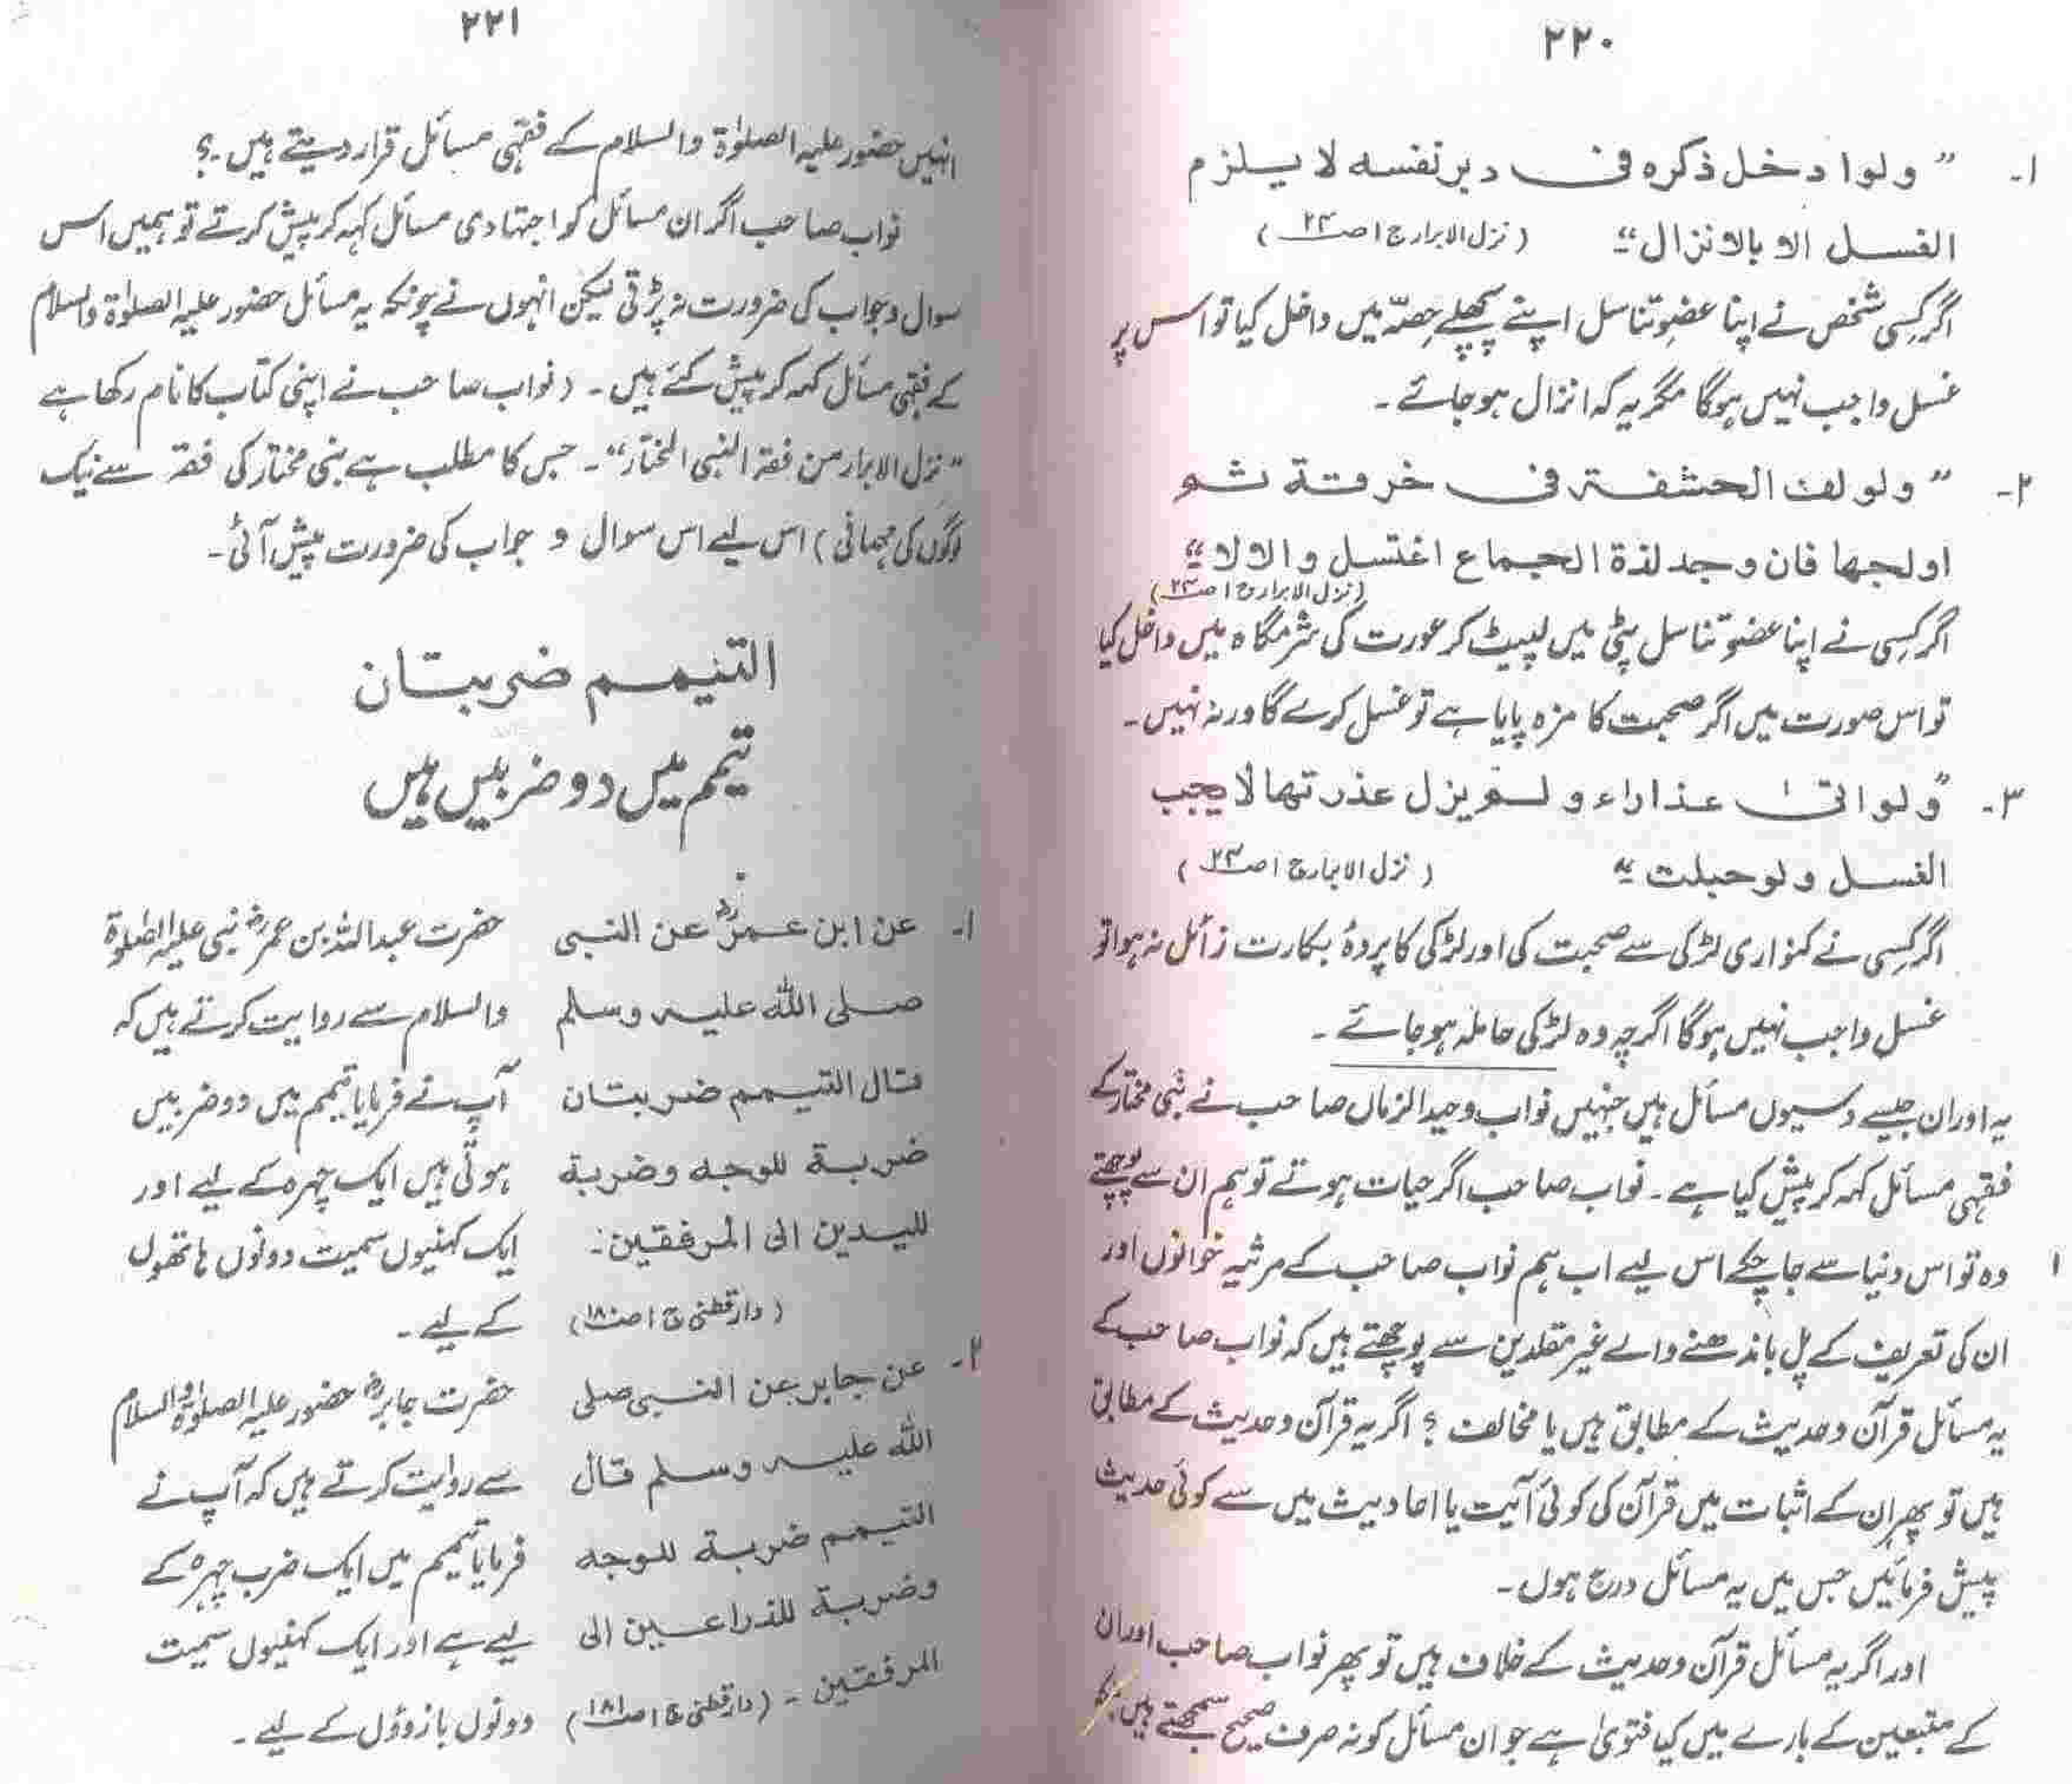 ۲۲۰
۱- ” ولوا دخل ذكره فى دبر نفسه لا يلزم
الغسل الا بالانزال“ (نزل الابرار ج ۱ ص۲۳)
اگر کسی شخص نے اپنا عضو تناسل اپنے پچھلے حصّہ میں داخل کیا تو اس پر
غسل واجب نہیں ہوگا مگر یہ کہ انزال ہو جائے۔
۲- ” ولو لف الحشفة فى خرقة ثم
اولجها فان وجد لذة الجماع اغتسل والا لا“
(نزل الابرار ج ۱ ص۲۳)
اگر کسی نے اپنا عضو تناسل پٹی میں لپیٹ کر عورت کی شرمگاہ میں داخل کیا
تو اس صورت میں اگر صحبت کا مزہ پایا ہے تو غسل کرے گا ورنہ نہیں۔
۳- ”ولو اتى عذاراء ولم يزل عذرتها لا يجب
الغسل ولو حبلت“ (نزل الابرار ج ۱ ص۲۳)
اگر کسی نے کنواری لڑکی سے صحبت کی اور لڑکی کا پردۂ بکارت زائل نہ ہوا تو
غسل واجب نہیں ہوگا اگرچہ وہ لڑکی حاملہ ہو جائے۔
یہ اور ان جیسے دسیوں مسائل ہیں جنہیں نواب وحید الزماں صاحب نے نبی مختار کے
فقہی مسائل کہہ کر پیش کیا ہے۔ نواب صاحب اگر حیات ہوتے تو ہم ان سے پوچھتے
وہ تو اس دنیا سے جا چکے اس لیے اب ہم نواب صاحب کے مرثیہ خوانوں اور
ان کی تعریف کے پل باندھنے والے غیر مقلدین سے پوچھتے ہیں کہ نواب صاحب کے
یہ مسائل قرآن وحدیث کے مطابق ہیں یا مخالف؟ اگر یہ قرآن وحدیث کے مطابق
ہیں تو پھر ان کے اثبات میں قرآن کی کوئی آیت یا احادیث میں سے کوئی حدیث
پیش فرمائیں جس میں یہ مسائل درج ہوں۔
اور اگر یہ مسائل قرآن وحدیث کے خلاف ہیں تو پھر نواب صاحب اور ان
کے متبعین کے بارے میں کیا فتویٰ ہے جو ان مسائل کو نہ صرف صحیح سمجھتے ہیں بلکہ
۲۲۱
انہیں حضور علیہ الصلوٰۃ والسلام کے فقہی مسائل قرار دیتے ہیں۔؟
نواب صاحب اگر ان مسائل کو اجتہادی مسائل کہہ کر پیش کرتے تو ہمیں اس
سوال وجواب کی ضرورت نہ پڑتی لیکن انہوں نے چونکہ یہ مسائل حضور علیہ الصلوٰۃ والسلام
کے فقہی مسائل کہہ کر پیش کئے ہیں۔ (نواب صاحب نے اپنی کتاب کا نام رکھا ہے
”نزل الابرار من فقہ النبی المختار“۔ جس کا مطلب ہے نبی مختار کی فقہ سے نیک
لوگوں کی مہمانی) اس لیے اس سوال و جواب کی ضرورت پیش آئی۔
التيمم ضربتان
تیمم میں دو ضربیں ہیں
۱- عن ابن عمرؓ عن النبى
صلى الله عليه وسلم
قال التيمم ضربتان
ضربة للوجه وضربة
لليدين الى المرفقين۔
(دارقطنی ج ۱ ص۱۸۰)
حضرت عبداللہ بن عمرؓ نبی علیہ الصلوٰۃ
والسلام سے روایت کرتے ہیں کہ
آپ نے فرمایا تیمم میں دو ضربیں
ہوتی ہیں ایک چہرہ کے لیے اور
ایک کہنیوں سمیت دونوں ہاتھوں
کے لیے۔
۲- عن جابر عن النبى صلى
الله عليه وسلم قال
التيمم ضربة للوجه
وضربة للذراعين الى
المرفقين - (دارقطنی ج ۱ ص۱۸۱)
حضرت جابرؓ حضور علیہ الصلوٰۃ والسلام
سے روایت کرتے ہیں کہ آپ نے
فرمایا تیمم میں ایک ضرب چہرہ کے
لیے ہے اور ایک کہنیوں سمیت
دونوں بازوؤں کے لیے۔